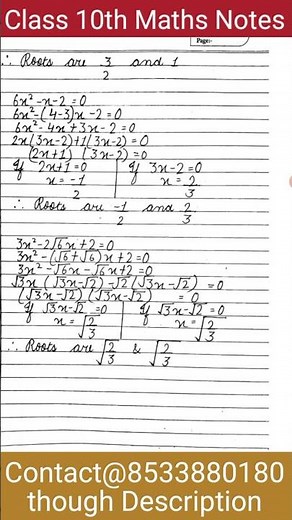 Class 10th Maths Notes
Page:
∴ Roots are 3/2 and 1
6x²-x-2=0
6x²-(4-3)x-2=0
6x²-4x+3x-2=0
2x(3x-2)+1(3x-2)=0
(2x+1) (3x-2)=0
If 2x+1=0 | If 3x-2=0
x=-1/2 | x=2/3
∴ Roots are -1/2 and 2/3
3x²-2√6x+2=0
3x²-(√6+√6)x+2=0
3x²-√6x-√6x+2=0
√3x(√3x-√2)-√2(√3x-√2)=0
(√3x-√2)(√3x-√2)=0
If √3x-√2=0 | If √3x-√2=0
x=√2/3 | x=√2/3
∴ Roots are √2/3 & √2/3
Contact@8533880180
though Description